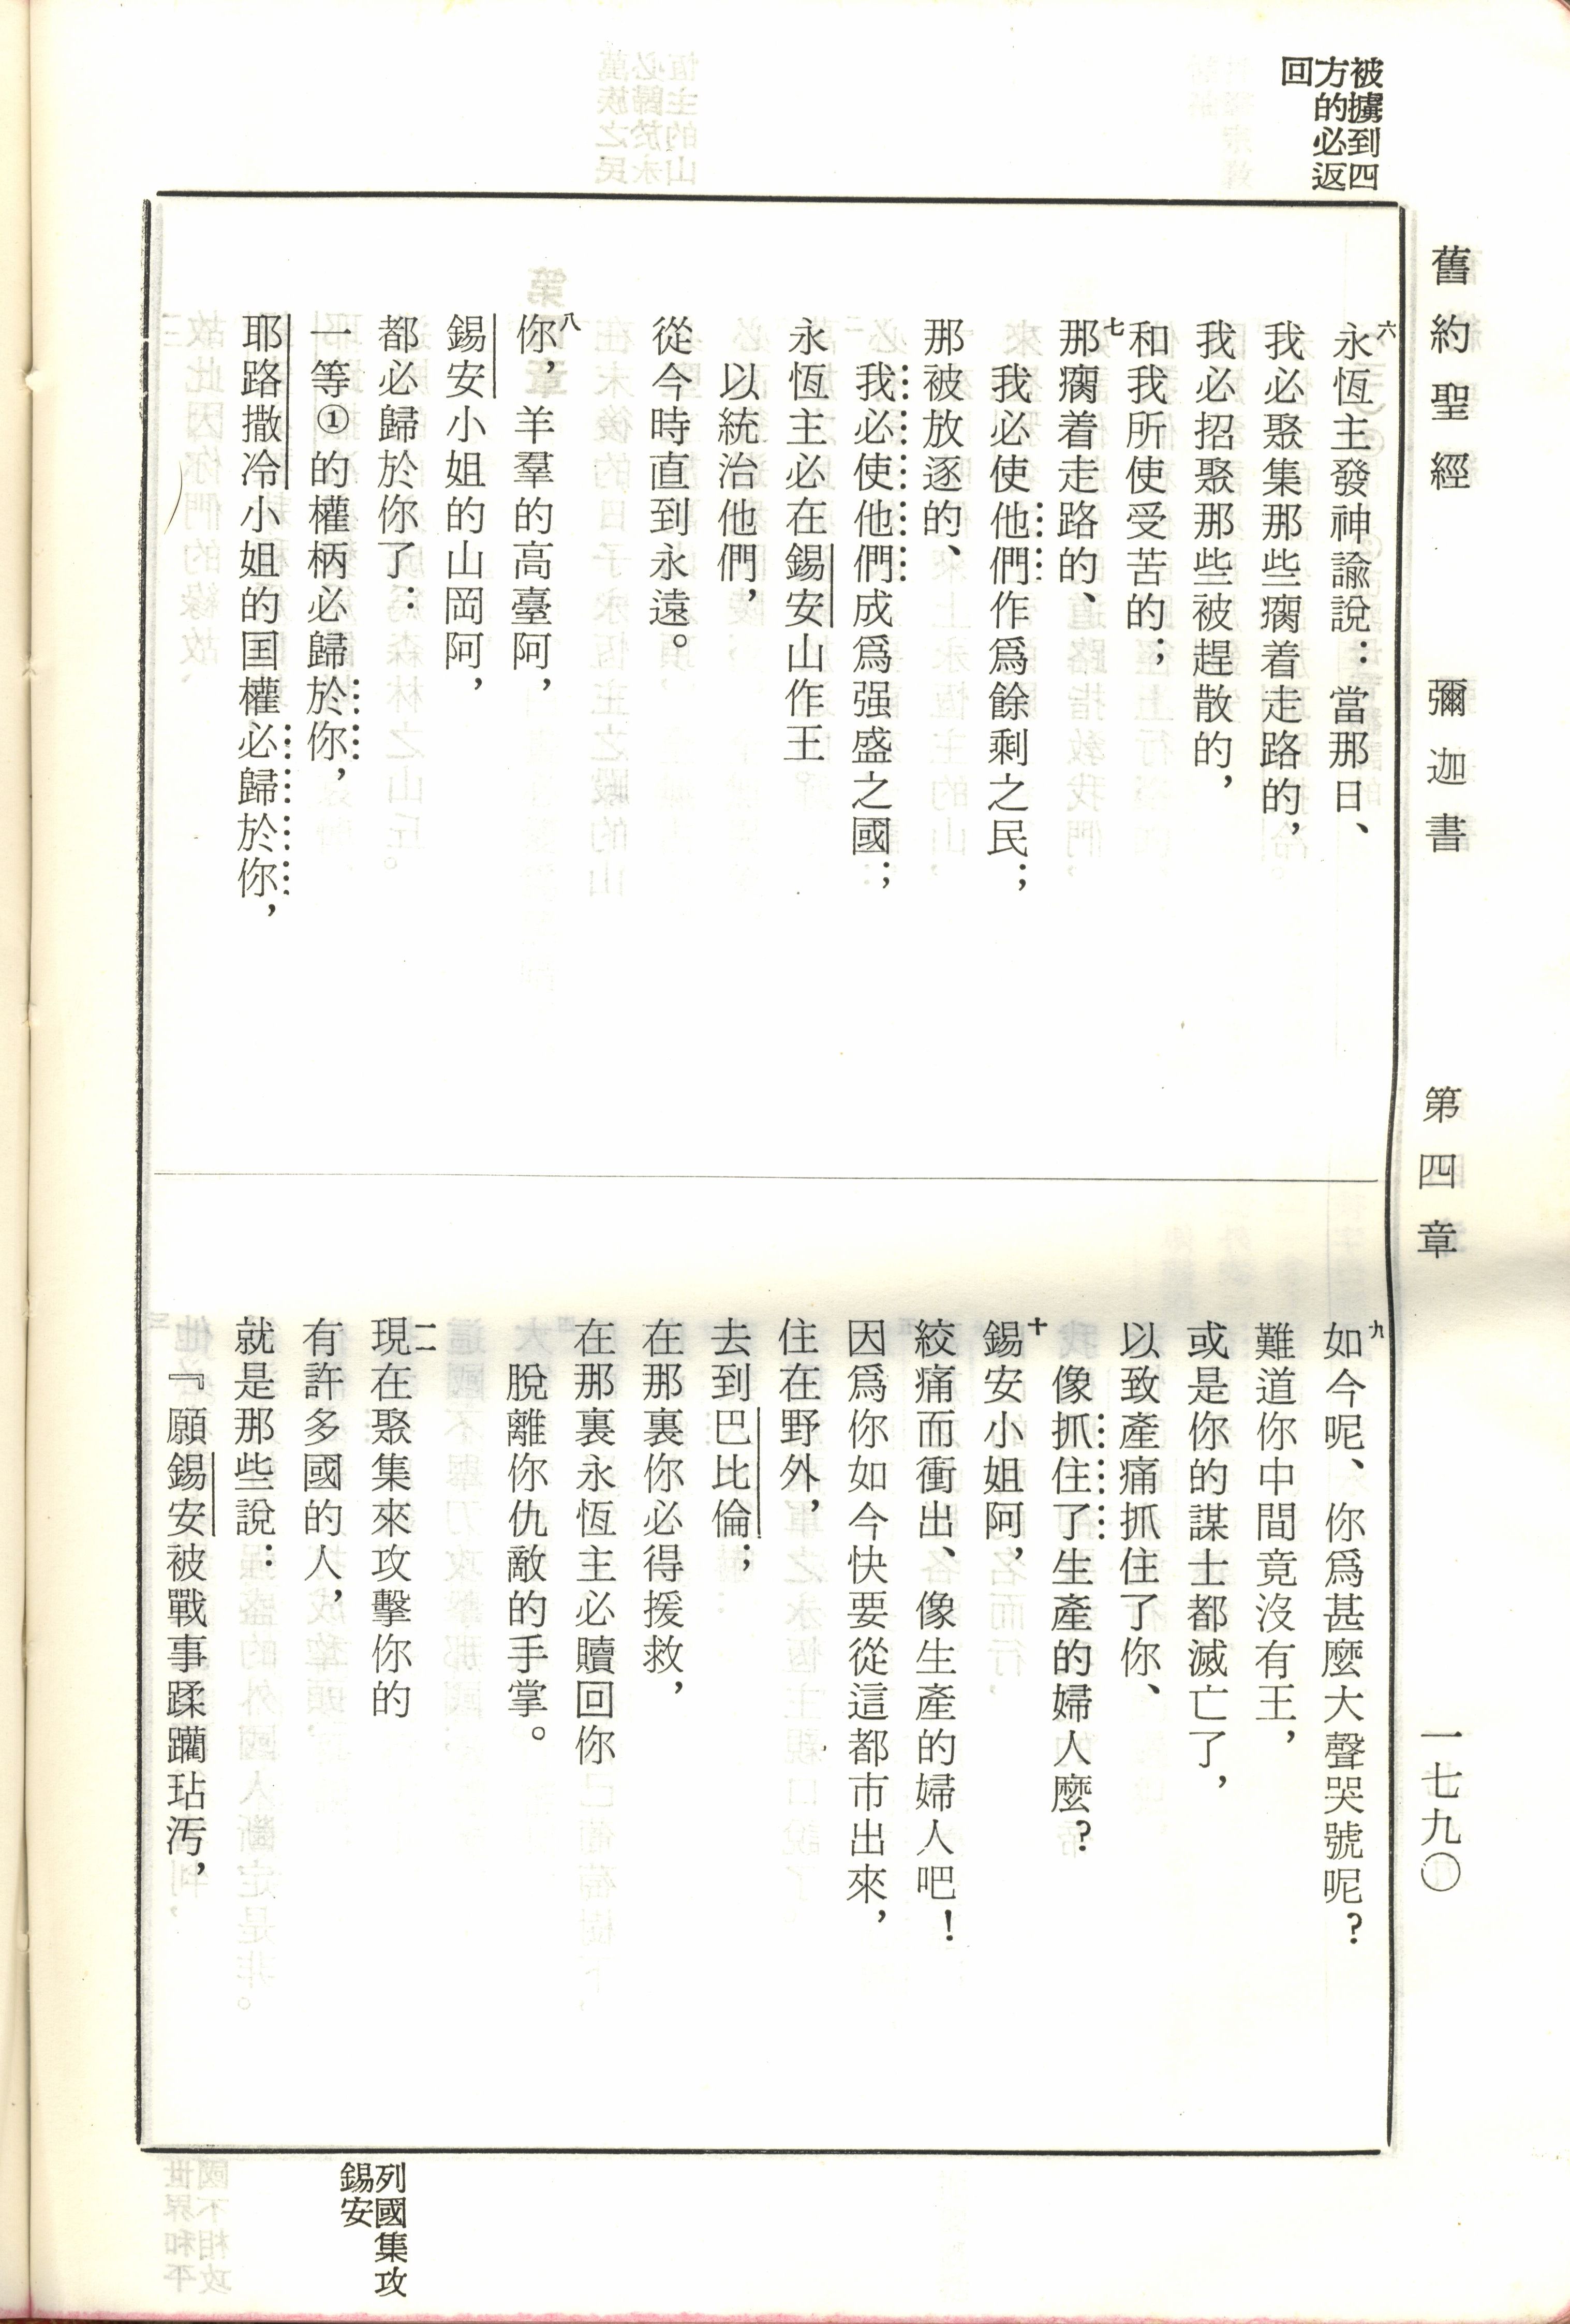 舊約聖經　彌迦書　第四章　一七九〇
被擄到四
方的必返
回
六永恆主發神諭說：當那日、
我必聚集那些瘸着走路的，
我必招聚那些被趕散的，
和我所使受苦的；
七那瘸着走路的、
我必使他們作爲餘剩之民；
那被放逐的、
我必使他們成爲强盛之國；
永恆主必在錫安山作王
以統治他們，
從今時直到永遠。
八你，羊羣的高臺阿，
錫安小姐的山岡阿，
都必歸於你了：
一等①的權柄必歸於你，
耶路撒冷小姐的国權必歸於你，
九如今呢、你爲甚麼大聲哭號呢？
難道你中間竟沒有王，
或是你的謀士都滅亡了，
以致產痛抓住了你、
像抓住了生產的婦人麼？
十錫安小姐阿，
絞痛而衝出、像生產的婦人吧！
因爲你如今快要從這都市出來，
住在野外，
去到巴比倫；
在那裏你必得援救，
在那裏永恆主必贖回你
脫離你仇敵的手掌。
一一現在聚集來攻擊你的
有許多國的人，
就是那些說：
『願錫安被戰事蹂躪玷汚，
列國集攻
錫安